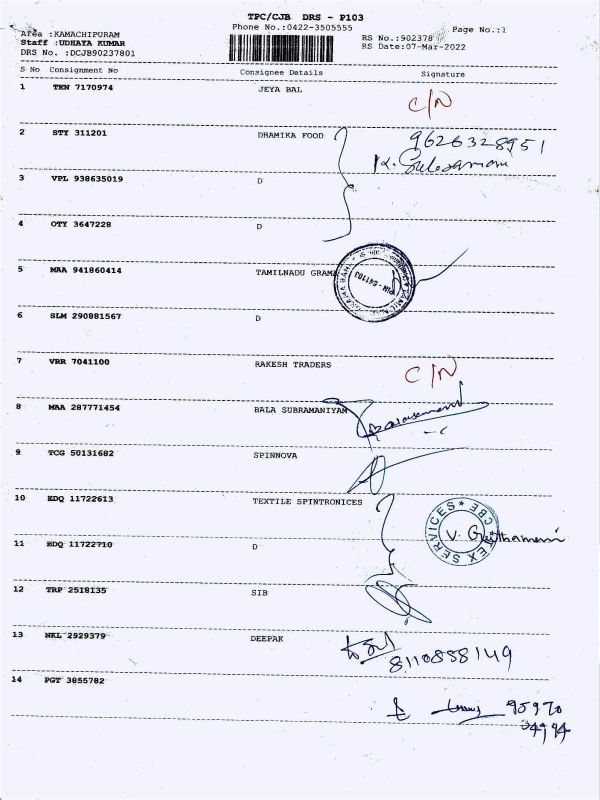 TPC/CJB DRS - P103
Phone No.:0422-3505555
Area :KAMACHIPURAM
Staff :UDHAYA KUMAR
DRS No. :DCJB90237801
RS No.:902378
RS Date:07-Mar-2022
Page No.:1
S No Consignment No Consignee Details Signature
1 TEN 7170974 JEYA BAL
C/N
2 STY 311201 DHAMIKA FOOD 9626328951
3 VPL 938635019 D
4 OTY 3647228 D
5 MAA 941860414 TAMILNADU GRAMA
PIN-641103
6 SLM 290881567 D
7 VRR 7041100 RAKESH TRADERS
C/N
8 MAA 287771454 BALA SUBRAMANIYAM
9 TCG 50131682 SPINNOVA
10 EDQ 11722613 TEXTILE SPINTRONICES
EX SERVICES * CBE *
V. Geethamani
11 EDQ 11722710 D
12 TRP 2518135 SIB
13 NKL 2929379 DEEPAK
8110888149
14 PGT 3855782
95970